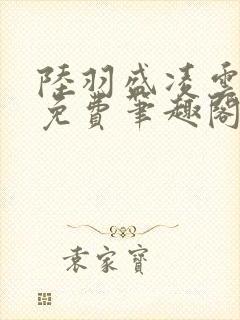 陸羽盛凌雲
免費筆趣閣
袁家寶